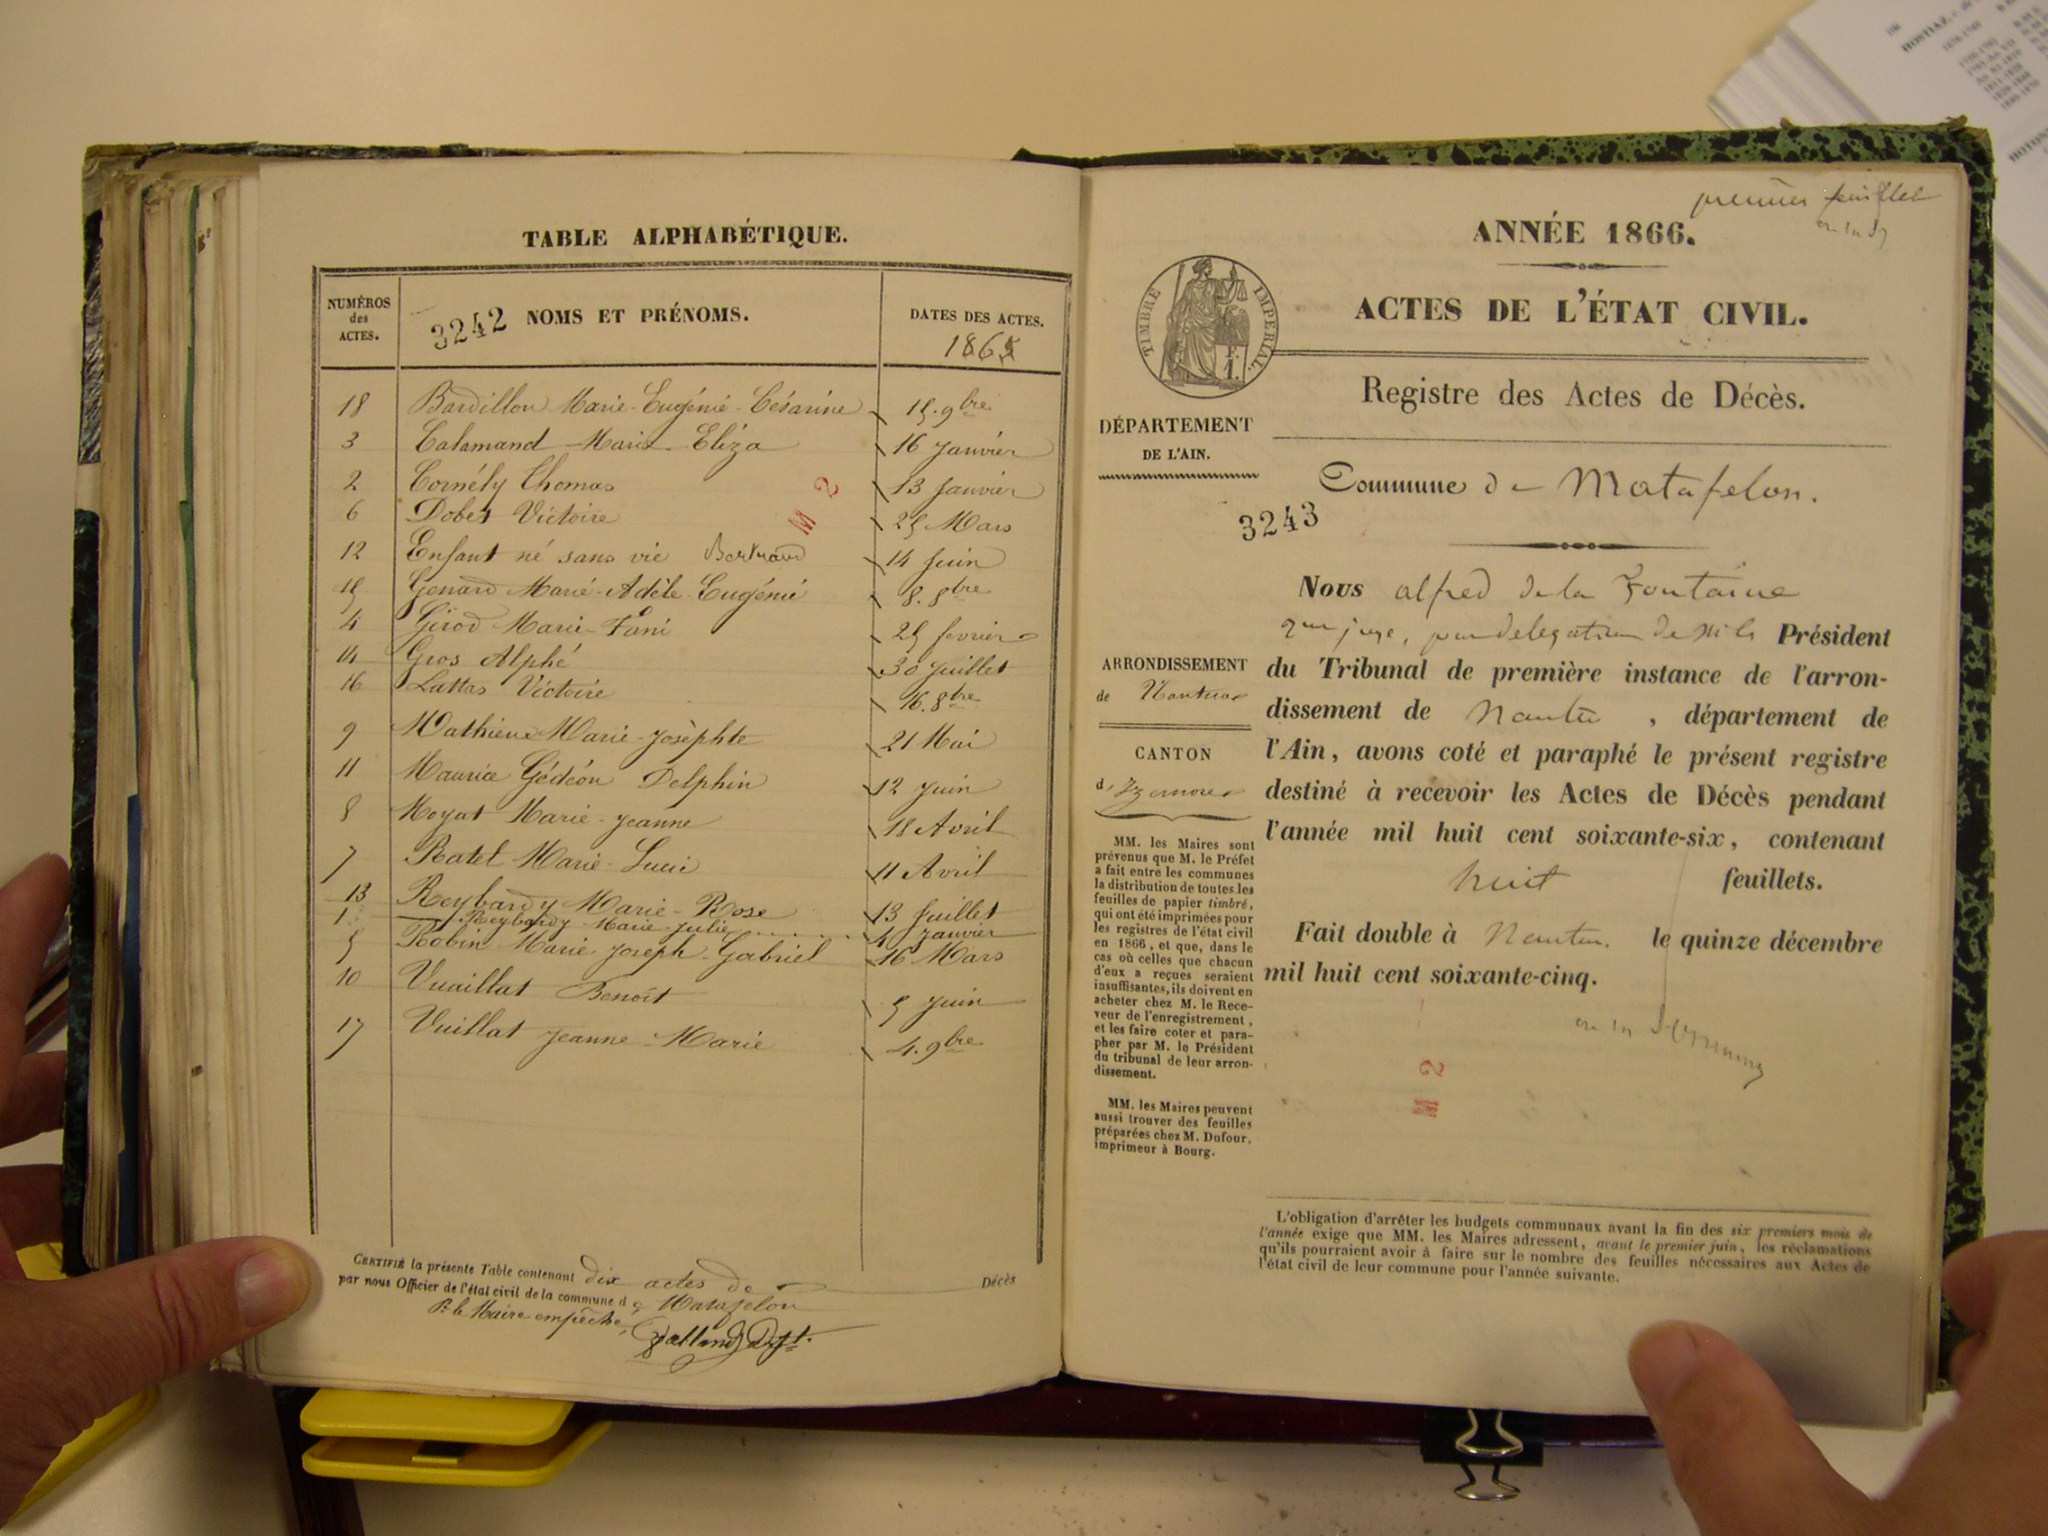 TABLE ALPHABÉTIQUE.
NUMÉROS des ACTES.
3242 NOMS ET PRÉNOMS.
DATES DES ACTES.
1865
18 Bardillon Marie-Eugénie-Césarine 15. 9bre
3 Calamand Marie-Eliza 16 Janvier
2 Cornély Thomas 13 Janvier
6 Dobet Victoire 25 Mars
M 2
12 Enfant né sans vie Bertrand 14 Juin
15 Genard Marie-Adèle-Eugénie 8. 8bre
4 Girod Marie-Fani 25 fevrier
14 Gros Alphé 30 Juillet
16 Lattas Victoire 16. 8bre
9 Mathieu Marie-Josèphte 21 Mai
11 Maurice Gédéon Delphin 12 Juin
8 Moyat Marie-Jeanne 18 Avril
7 Ratel Marie-Lucie 11 Avril
13 Reybardy Marie-Rose 13 Juillet
1. Reybardy Marie-Julie 4 Janvier
5 Robin Marie Joseph-Gabriel 16 Mars
10 Vuaillat Benoît 5 Juin
17 Vuillat Jeanne-Marie 4. 9bre
CERTIFIÉ la présente Table contenant dix actes de Décès
par nous Officier de l'état civil de la commune d e Matafelon
Pr le Maire empêché,
premier feuillet
ANNÉE 1866.
TIMBRE IMPERIAL.
F. 1.
ACTES DE L'ÉTAT CIVIL.
Registre des Actes de Décès.
DÉPARTEMENT
DE L'AIN.
Commune de Matafelon.
3243
Nous alfred de la Fontaine
juge, par delegation de Président
du Tribunal de première instance de l'arron-
dissement de Nantua, département de
l'Ain, avons coté et paraphé le présent registre
destiné à recevoir les Actes de Décès pendant
l'année mil huit cent soixante-six, contenant
huit feuillets.
Fait double à Nantua. le quinze décembre
mil huit cent soixante-cinq.
M 2
ARRONDISSEMENT
de Nantua
CANTON
d' Izernore
MM. les Maires sont
prévenus que M. le Préfet
a fait entre les communes
la distribution de toutes les
feuilles de papier timbré,
qui ont été imprimées pour
les registres de l'état civil
en 1866, et que, dans le
cas où celles que chacun
d'eux a reçues seraient
insuffisantes, ils doivent en
acheter chez M. le Rece-
veur de l'enregistrement,
et les faire coter et para-
pher par M. le Président
du tribunal de leur arron-
dissement.
MM. les Maires peuvent
aussi trouver des feuilles
préparées chez M. Dufour,
imprimeur à Bourg.
L'obligation d'arrêter les budgets communaux avant la fin des six premiers mois de
l'année exige que MM. les Maires adressent, avant le premier juin, les réclamations
qu'ils pourraient avoir à faire sur le nombre des feuilles nécessaires aux Actes de
l'état civil de leur commune pour l'année suivante.